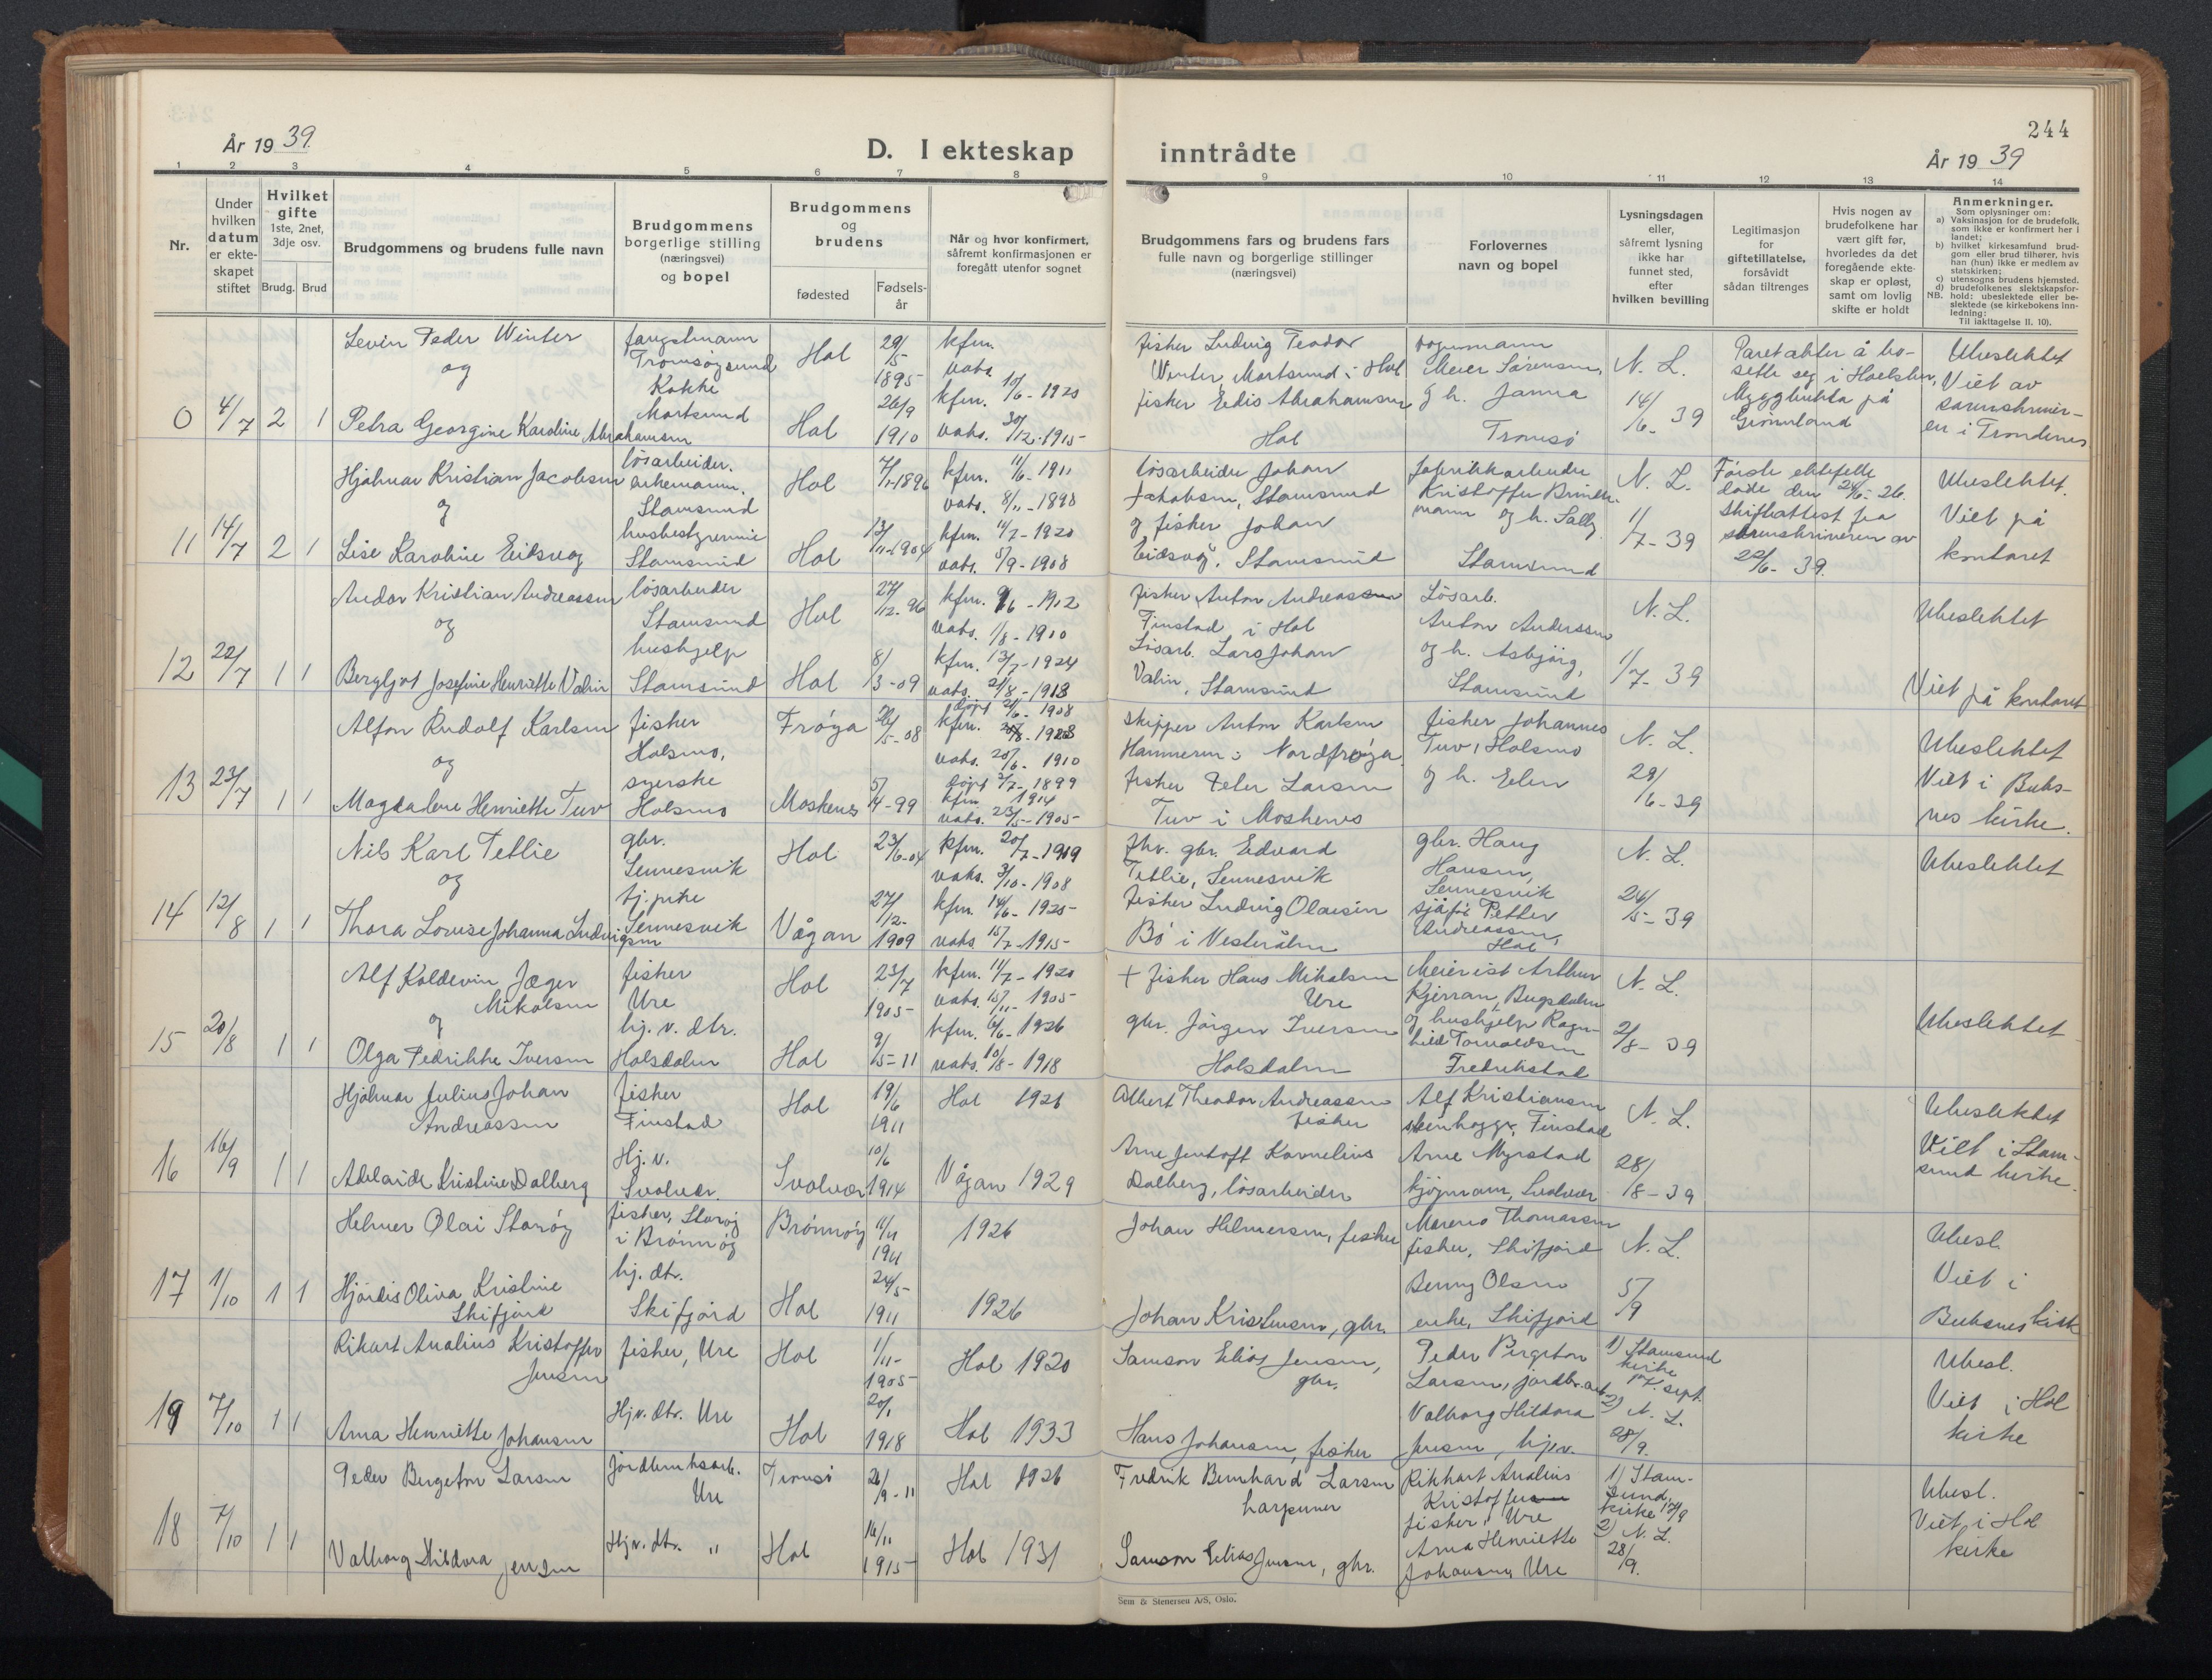 244
År 1939.
D. I ekteskap inntrådte
År 1939
1 2 3 4 5 6 7 8 9 10 11 12 13 14
Nr.
Under hvilken datum er ekteskapet stiftet
Hvilket gifte 1ste, 2net, 3dje osv.
Brudg. Brud
Brudgommens og brudens fulle navn
Brudgommens borgerlige stilling (næringsvei) og bopel
Brudgommens og brudens
fødested
Fødsels-år
Når og hvor konfirmert, såfremt konfirmasjonen er foregått utenfor sognet
Brudgommens fars og brudens fars fulle navn og borgerlige stillinger (næringsvei)
Forlovernes navn og bopel
Lysningsdagen eller, såfremt lysning ikke har funnet sted, efter hvilken bevilling
Legitimasjon for giftetillatelse, forsåvidt sådan tiltrenges
Hvis nogen av brudefolkene har vært gift før, hvorledes da det foregående ekteskap er opløst, samt om lovlig skifte er holdt
Anmerkninger.
Som oplysninger om:
a) Vaksinasjon for de brudefolk, som ikke er konfirmert her i landet;
b) hvilket kirkesamfund brudgom eller brud tilhører, hvis han (hun) ikke er medlem av statskirken;
c) utensogns brudens hjemsted.
d) brudefolkenes slektskapsforhold: ubeslektede eller beslektede (se kirkebokens innledning:
NB. Til iakttagelse II. 10).
0 4/7 2 1
Levin Peder Winter
og
Petra Georgine Karoline Abrahamsen
fangstmann
Tromsøysund
Kokke
Mortsund
Hol 29/5 1895
Hol 26/9 1910
kfm.
vaks.
kfm. 10/6 - 1920
vaks. 30/12 - 1915
fisker Ludvig Teodor
Winter, Mortsund i Hol
fisker Edis Abrahamsen
Hol
Meier Sørensen,
g h. Janna
Tromsø
N. L.
14/6 - 39
Paret akter å bo-
sette seg i
Myggbukta på
Grønnland
Ubeslektet
Viet av
sorenskriver-
en i Trondenes
11 14/7 2 1
Hjalmar Kristian Jacobsen
og
Lise Karoline Eidsvog
løsarbeider.
enkemann.
Stamsund
husbestyrerinne
Stamsund
Hol 7/1 - 1896
Hol 13/11 - 1904
kfm. 11/6 - 1911
vaks. 8/11 - 1898
kfm. 11/7 - 1920
vaks. 5/9 - 1908
løsarbeider Johan
Jakobsen, Stamsund
og fisker Johan
Eidsvog, Stamsund
fabrikkarbeider
Kristoffer
mann og h. Sally
Stamsund
N. L.
1/7 - 39
Første ektefelle
døde den 24/6 - 26.
Skifteattest fra
sorenskriveren av
22/6 - 39.
Ubeslektet.
Viet på
kontoret
12 22/7 1 1
Andor Kristian Andreassen
og
Bergljot Josefine Henriette Valin
løsarbeider
Stamsund
hushjelp
Stamsund
Hol 27/12 - 96
Hol 8/3 - 09
kfm. 9/6 - 1912
vaks. 1/8 - 1910
kfm. 13/7 - 1924
vaks. 21/8 - 1913
fisker Anton Andreassen
Finstad i Hol
Løsarb. Lars Johan
Valin, Stamsund
Løsarb.
Anton Anderssen
og h. Asbjørg,
Stamsund
N. L.
1/7 - 39
Ubeslektet
Viet på kontoret
13 23/7 1 1
Alfon Rudolf Karlsen
og
Magdalene Henriette Tuv
fisker
Holsmo,
syerske
Holsmo
Frøya 26/5 - 08
Moskenes 5/4 - 99
døpt 21/6 - 1908
kfm.
vaks. 20/6 - 1910
døpt 2/7 - 1899
kfm. 1914
vaks. 23/5 - 1905
skipper Anton Karlsen
Hammeren i Nordfrøya
fisker Peler Larsen
Tuv i Moskenes
fisker Johannes
Tuv, Holsmo
g h. Eelen
N. L.
29/6 - 39
Ubeslektet
Viet i Buks-
nes kirke.
14 12/8 1 1
Nils Karl Tetlie
og
Thora Lovise Johanna Ludvigsen
gbr.
Sennesvik
tj.pike
Sennesvik
Hol 23/6 - 04
Vågan 27/12 - 1909
kfm. 20/7 - 1919
vaks. 3/10 - 1908
kfm. 14/6 - 1925
vaks 15/7 - 1915
fhv. gbr. Edvard
Tetlie, Sennesvik
fisker Ludvig Olausen
Bø i Vesterålen
gbr. Haug
Hansen,
Sennesvik
sjåfør Petter
Andreassen,
Hol
N. L.
26/5 - 39
Ubeslektet
15 20/8 1 1
Alf Koldevin Jæger
Mikalsen
og
Olga Fedrikke Iversen
fisker
Ure
hj. v. dtr.
Holsdalen
Hol 23/7 1905
Hol 9/5 - 11
kfm. 11/7 - 1920
vaks. 15/11 - 1905
kfm. 6/6 - 1926
vaks. 10/8 - 1918
+ fisker Hans Mikalsen
Ure
gbr. Jørgen Iversen
Holsdalen
Meierist Arthur
Kjerran, Bygdalen
og hushjelp Ragn-
hild Torvaldsen
Fredrikstad
N. L.
2/8 - 39
Ubeslektet
16 16/9 1 1
Hjalmar Julius Johan
Andreassen
Adelaide Kristine Dalberg
fisker
Finstad
Hj. v.
Svolvær.
Hol 19/6 1911
Svolvær 10/6 1914
Hol 1926
Vågan 1929
Albert Theodor Andreassen
fisker
Arne Jentoft Kornelius
Dalberg, løsarbeider
Alf Kristiansen
stenhogger, Finstad
Arne Myrstad
kjøpmann, Svolvær
N. L.
28/8 - 39
Ubeslektet
Viet i Stam-
sund kirke.
17 1/10 1 1
Helmer Olai Storøy
Hjørdis Oliva Kristine
Skifjord
fisker, Storøy
i Brønnøy
hj. dtr.
Skifjord
Brønnøy 11/11 1911
Hol 24/5 1911
1926
1926
Johan Hilmersen, fisker
Johan Kristensen, gbr.
Marenus Thomassen
fisker, Skifjord
Benny Olsen
enke, Skifjord
N. L.
5/9
Ubesl.
Viet i
Buksnes kirk
19 7/10 1 1
Rikart Analius Kristoffer
Jensen
Arna Henriette Johansen
fisher, Ure
Hjv. dtr. Ure
Hol 1/11 - 1905
Hol 20/1 1918
Hol 1920
Hol 1933
Samson Elias Jensen,
gbr.
Hans Johansen, fisker
Peder Bergeton
Larsen, jordbr.arb.
Valborg Hildora
Jensen, hjev.
1) Stamsund
kirke
sept.
2) N. L.
28/9.
Ubesl.
Viet i Hol
kirke
18 7/10 1 1
Peder Bergeton Larsen
Valborg Hildora Jensen
Jordbruksarb.
Ure
Hjv. dtr. "
Tromsö 26/9 - 11
Hol 16/11 1915
Hol 1926
Hol 1931
Fredrik Bernhard Larsen
harpuner
Samson Elias Jensen, gbr.
Rikhart Analius
Kristoffer
fisker, Ure
Arna Henriette
Johansen, Ure
1) Stam-
sund
kirke 17/9
2) N. L.
28/9.
Ubesl.
Viet i Hol
kirke
Sem & Stenersen A/S, Oslo.